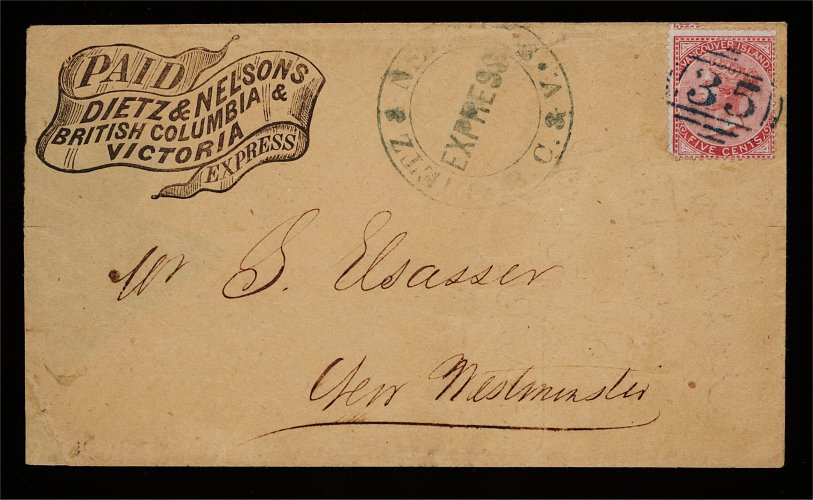 PAID
DIETZ & NELSONS
BRITISH COLUMBIA &
VICTORIA
EXPRESS
DIETZ & NEL
EXPRESS
C. & V.
VANCOUVER ISLAND
35
FIVE CENTS
Mr S. Elsasser
New Westminster